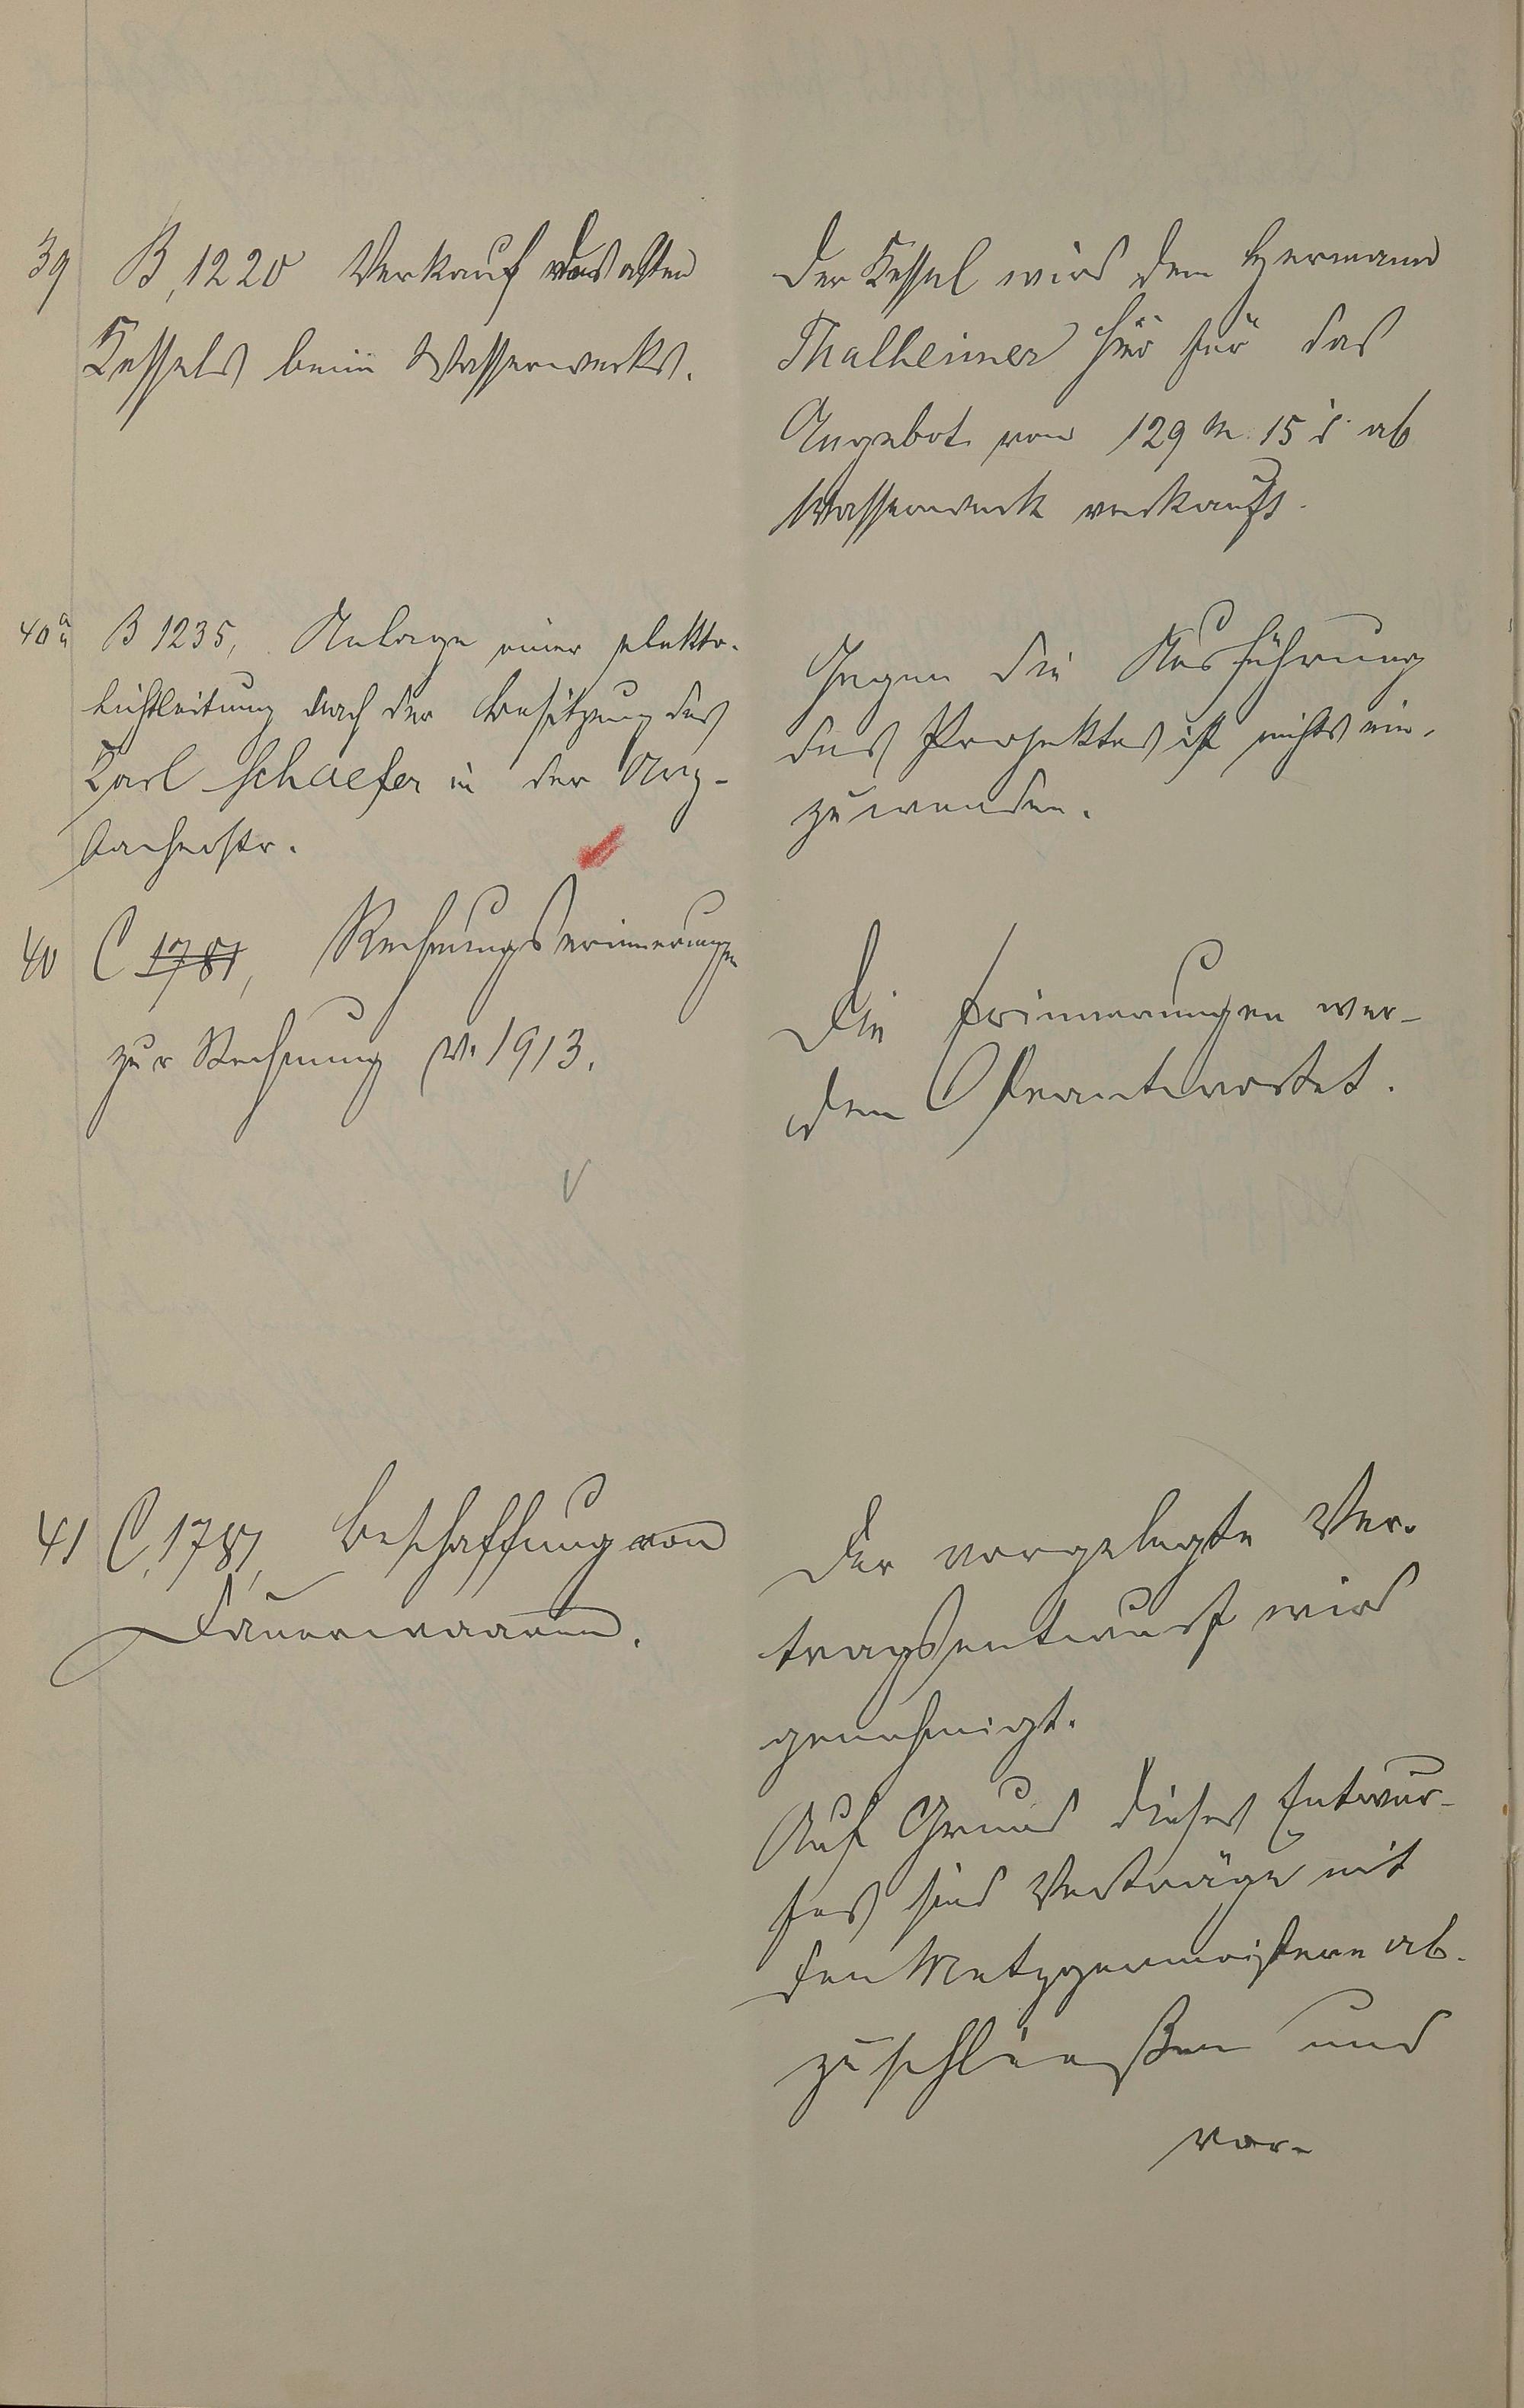 39 B, 1220 Verkauf des alten
Kessels beim Wasserwerks.
Der Kessel wird dem Hermann
Thalheimer hier für das
Angebot von 129 M 15 ₰ ab
Wasserwerk verkauft.
40a B 1235, Anlage einer elektr.
Lichtleitung nach der Besitzung des
Karl Schaefer in der
bacherstr.
Gegen die Ausführung
des Projektes ist nichts ein-
zuwenden.
40 C 1781, Rechnungserinnerungen
zur Rechnung v. 1913.
Die Erinnerungen wer-
den beantwortet.
41 C, 1787, Beschaffung von
Dauerwaaren.
Der vorgelegte Ver-
tragsentwurf wird
genehmigt.
Auf Grund dieses Entwur-
fes sind Verträge mit
den Metzgermeistern ab-
zuschließen und
vor-